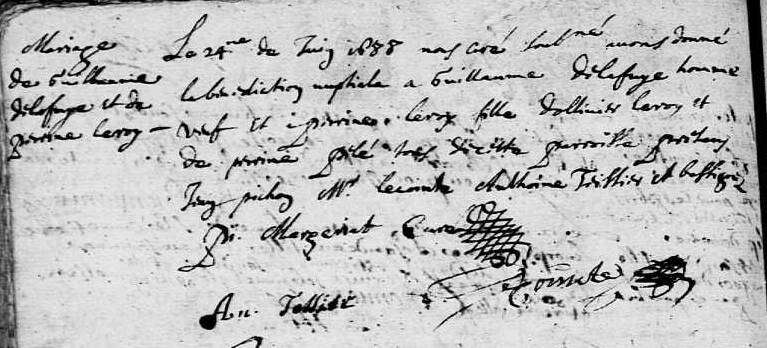 Mariage
de Guillaume
delafuye et de
perrine leroy
Le 24me de Juin 1688 nous curé soubne avons donné
la benediction nuptiale a Guillaume delafuye homme
veuf et a perrine leroy fille dollivier leroy et
de perrine pelé tous de cette parroisse presens
Jean pichon Mr lecomte Anthoine Teissier et
Pr. Mergeriat Curé
Lecomte
An. Tessier